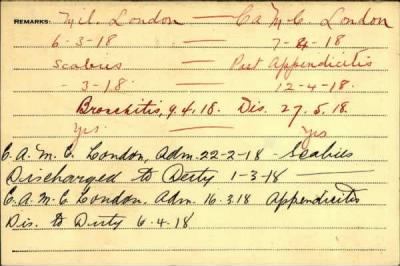 REMARKS: Mil. London — C.A.M.C. London
6-3-18 — 7-4-18
Scabies — Post Appendicitis
-3-18. — 12-4-18.
Bronchitis, 9.4.18. Dis. 27.5.18.
Yes — Yes
C.A.M.C. London, Adm. 22-2-18 - Scabies
Discharged to Duty 1-3-18 —
C.A.M.C. London, Adm. 16.3.18 Appendicitis
Dis. to Duty 6.4.18